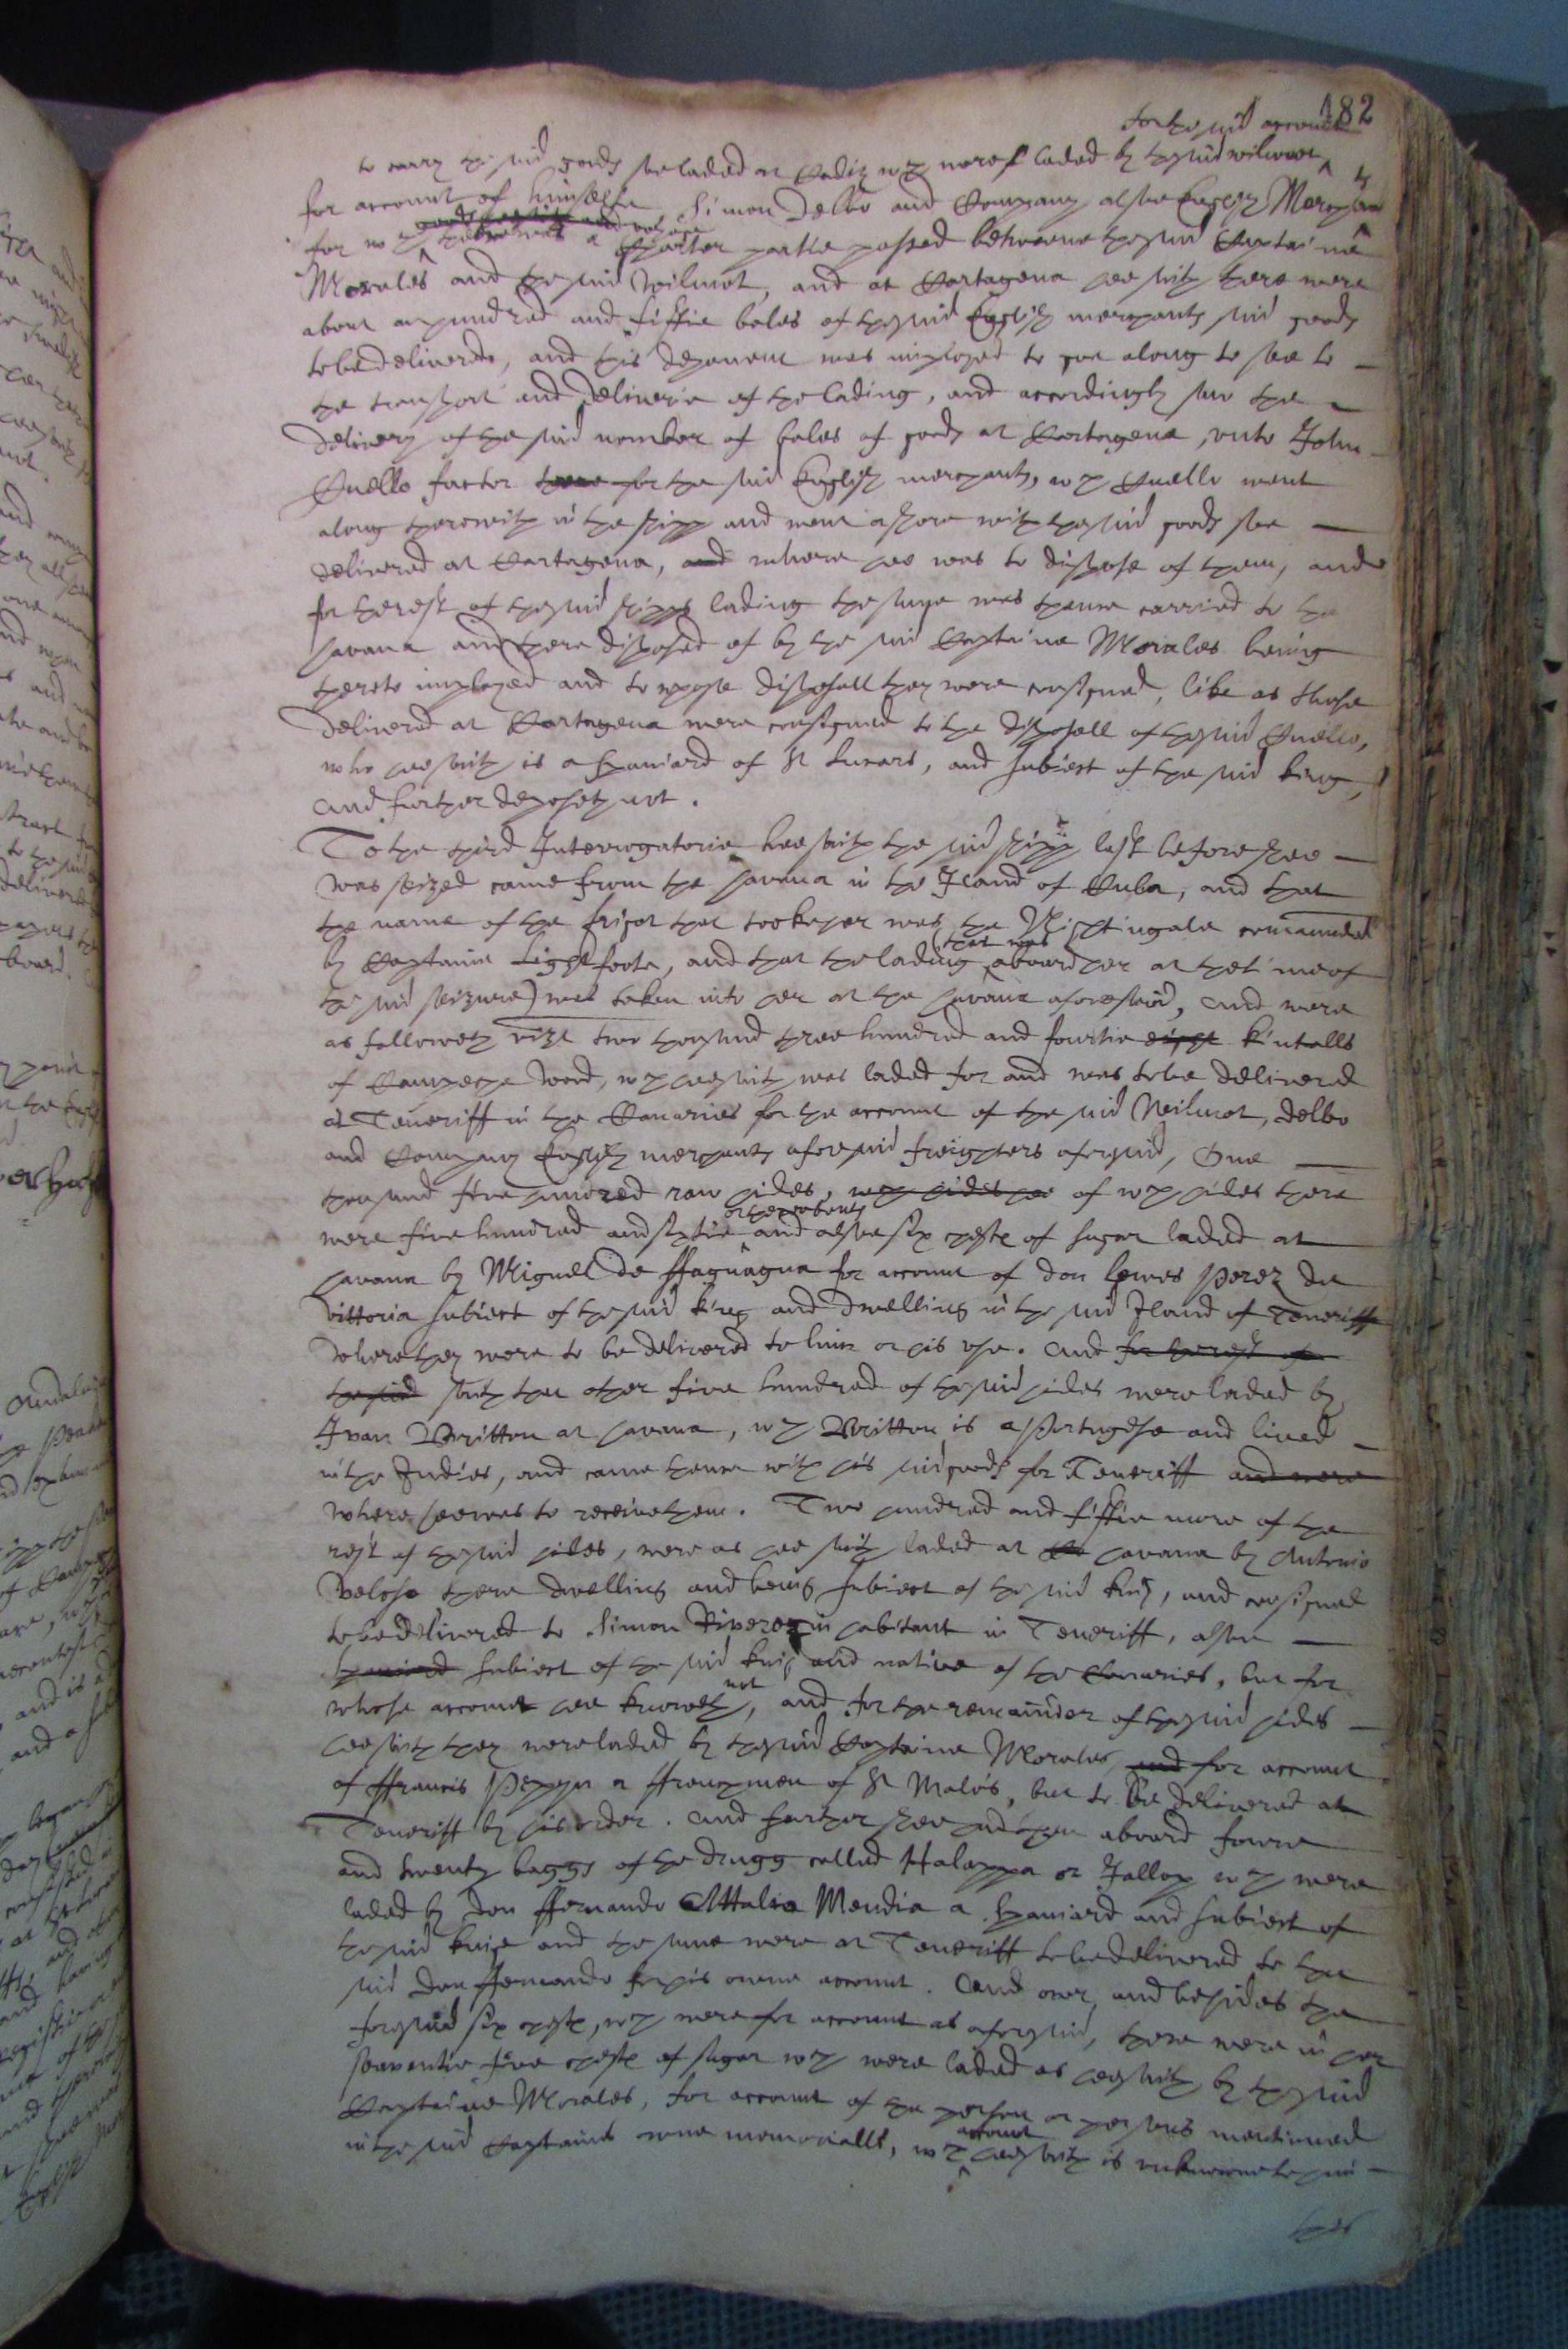 182
for the said account
to carry the said goods soe laded at Cadiz wch were laded by the said Wilmot
for account of himselfe Simon Delbo and Company alsoe English Merchants
for wch there was a Charter partie passed betweene the said Captaine
Morales and the said Wilmot, and at Cartagena hee saith there were
about an hundred and fiftie bales of the said English merchants said goods
to be delivered, and this deponent was imployed to goe along to see to
the transport and deliverie of the lading, and accordingly saw the
delivery of the said number of bales of goods at Cartagena, unto John
Quello factor there for the said English merchants, wch Quello went
along therewith in the shipp and went ashore with the said goods soe
delivered at Cartagena, and where hee was to dispose of them, and
for the rest of the said shipps lading the same was thence carried to the
havana and there disposed of by the said Captaine Morales being
thereto imployed and to whose disposall they were consigned, like as those
delivered at Cartagena were consigned to the disposall of the said Quello,
who hee saith is a Spaniard of St Lucars, and subiect of the said king,
And further deposeth not.
To the third Interrogatorie hee saith the said shipp last before shee
was seized came from the havana in the Iland of Cuba, and that
the name of the frigot that tooke her was the Nightingale comanded
by Captaine Lightfoote, and that the lading (that was aboard her at the time of
the said seizure) was taken into her at the havana aforesaid, and were
as followeth vizt two thousand three hundred and fourtie eight kintalls
of Campeche wood, wch hee saith was laded for and was to be delivered
at Teneriff in the Canaries for the account of the said Wilmot, Delbo
and Company English merchants aforesaid freighters aforesaid, One
thousand five hundred raw hides, wch hides hee of wch hides there
were five hundred and sixtie or thereabouts and alsoe six chests of sugar laded at
havana by Miguel de ffaguagua for account of don Lewes Perez de
Vittoria subiect of the said king and dwelling in the said Iland of Teneriff
where they were to be delivered to him or his use. And for the rest of
the said saith the other five hundred of the said hides were laded by
Ivan Britton at havana, wch Britton is a Portugese and lived
in the Indies, and came thence with his said goods for Teneriff and were
where hee was to receive them. Two hundred and fiftie more of the
rest of the said hides, were as hee saith laded at the havana by Antonio
Veloso there dwelling and being subiect of the said king, and consigned
to be delivered to Simon Riverez inhabitant in Teneriff, alsoe
Spaniard subiect of the said king and native of the Canaries, but for
whose account hee knoweth not, and for the remainder of the said hides
hee saith they were laded by the said Captaine Morales, and for account
of ffrancis Peppyn a ffrenchman of St Malos, but to be delivered at
Teneriff by his order. And further shee had then aboard foure
and twenty baggs of the drugg called Halappa or Jallop wch were
laded by don ffernando Attalia Mendia a Spaniard and subiect of
the said king and the same were at Teneriff to be delivered to the
said don ffernando for his owne account. And over and besides the
foresaid six chests, wch were for account as aforesaid, there were in her
seaventie five chests of sugar wch were laded as hee saith by the said
Captaine Morales, for account of the person or persons mentioned
in the said Captains owne memorialls, wch account hee saith is unknowne to him